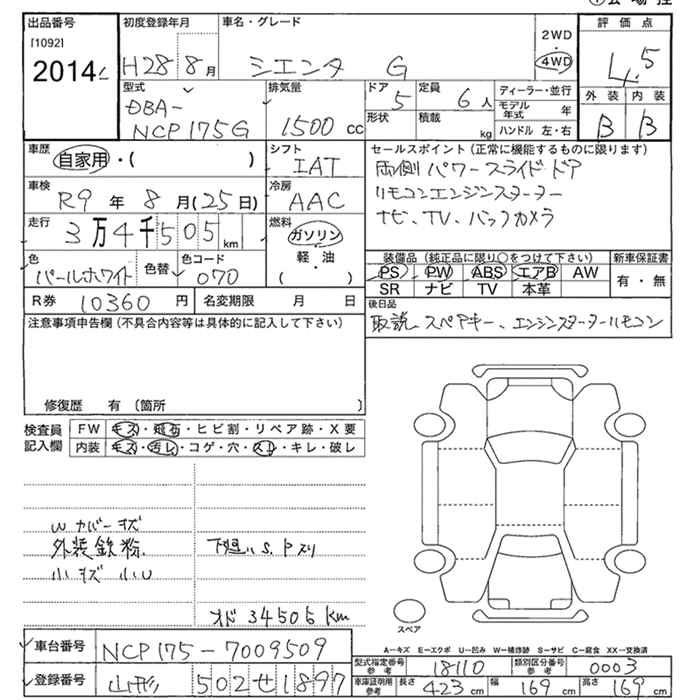 出品番号 初度登録年月 車名・グレード 評価点
[1092]
2014 H28 8月 シエンタ G 2WD・4WD 4.5
型式 排気量 ドア 定員 ディーラー・並行 外装 内装
DBA- 5 6人 モデル年式 年 B B
NCP175G 1500cc 形状 積載 kg ハンドル 左・右
車歴 自家用・( ) シフト IAT セールスポイント (正常に機能するものに限ります)
車検 R9年 8月(25日) 冷房 AAC 両側パワースライドドア
リモコンエンジンスターター
走行 3万4千505km 燃料 ガソリン・軽油・( ) ナビ、TV、バックカメラ
色 パールホワイト 色替 色コード 070 装備品 (純正品に限り○をつけて下さい) 新車保証書
PS PW ABS エアB AW 有・無
R券 10360円 名変期限 月 日 SR ナビ TV 本革
注意事項申告欄 (不具合内容等は具体的に記入して下さい) 後日品
取説、スペアキー、エンジンスターターリモコン
修復歴 有 (箇所
検査員記入欄 FW キズ・飛石・ヒビ割・リペア跡・X要
内装 キズ・汚レ・コゲ・穴・スレ・キレ・破レ
W カバーキズ
外装鉄粉.
小キズ 小U
オド 34505km
スペア
A−キズ E−エクボ U−凹み W−補修跡 S−サビ C−腐食 XX−交換済
車台番号 NCP175-7009509 型式指定番号 参考 18110 類別区分番号 参考 0003
登録番号 山形 502 せ 1897 車庫証明用 参考 長さ 423cm 幅 169cm 高さ 169cm